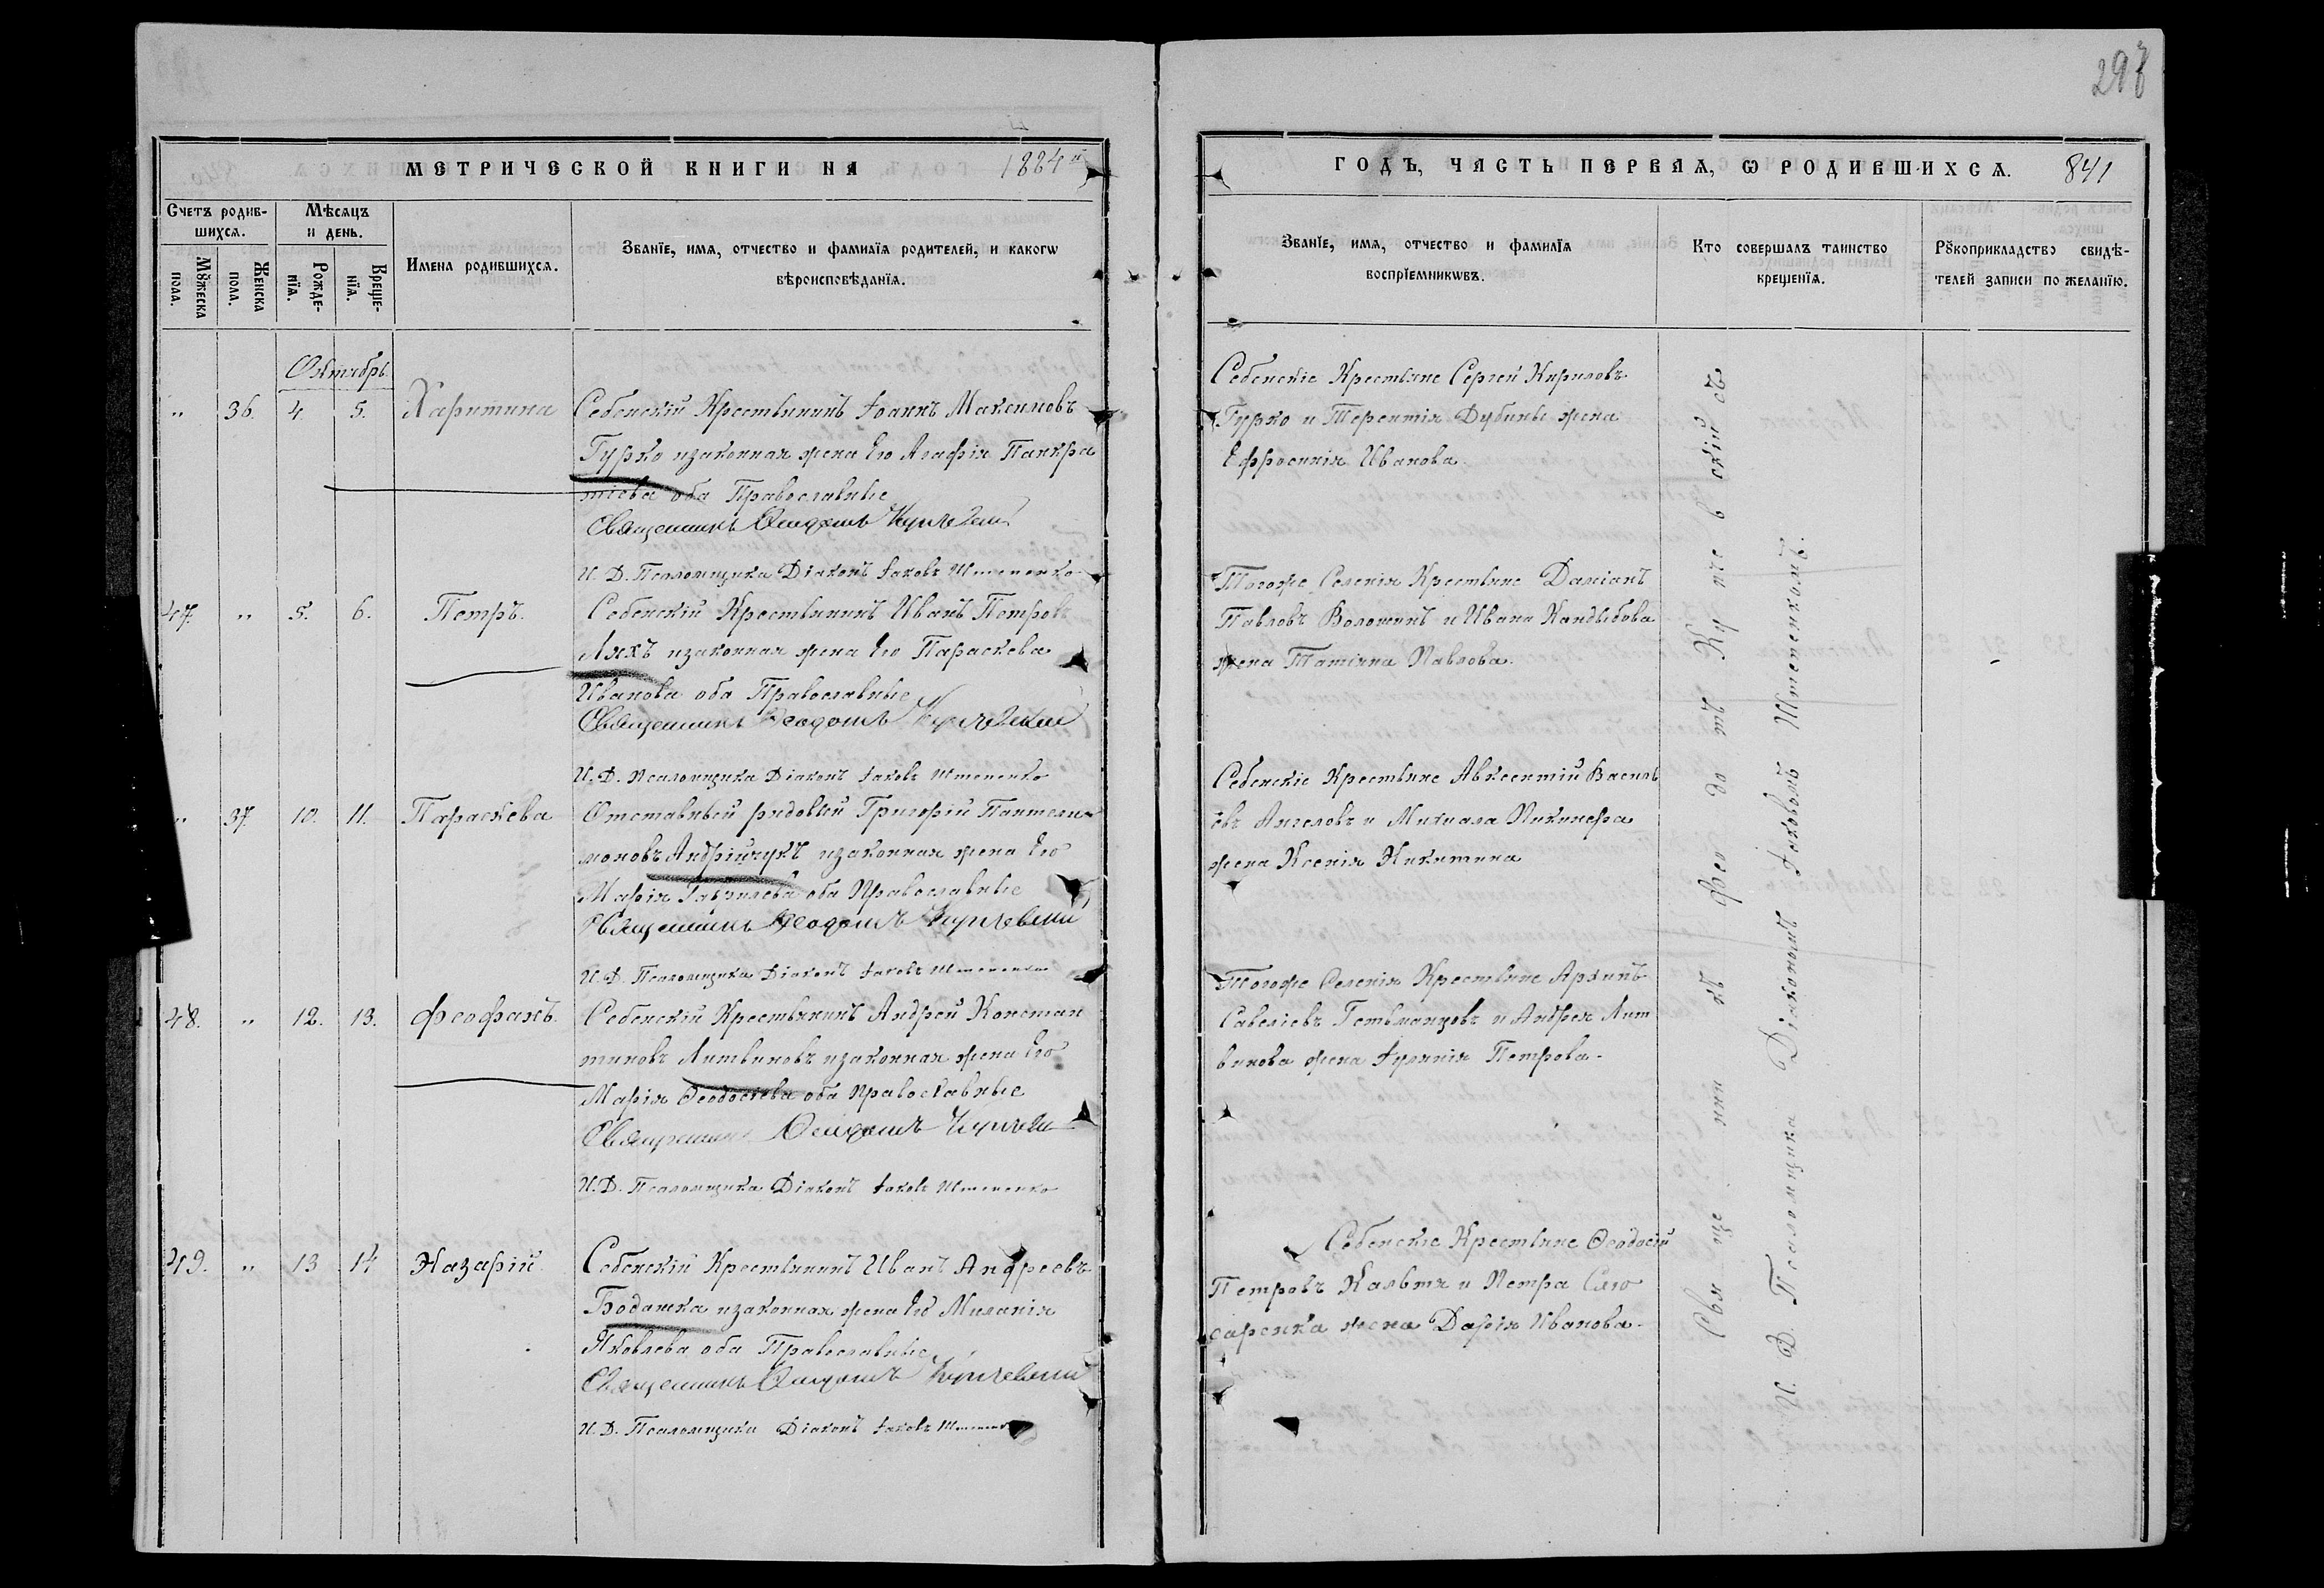 298
МЕТРИЧЕСКОЙ КНИГИ НА 1884й
ГОДЪ, ЧАСТЬ ПЕРВАЯ, Ѡ РОДИВШИХСЯ. 841
Счетъ родив-
шихся.
Мѣсяцъ
и день.
Мꙋжеска
пола.
Женска
пола.
Рожде-
нїя.
Креще-
нїя.
Имена родившихся.
Званїе, имя, отчество и фамилїя родителей, и какогѡ
вѣроисповѣданїя.
Званїе, имя, отчество и фамилїя
воспрїемникѡвъ.
Кто совершалъ таинство
крещенїя.
Рꙋкоприкладство свидѣ-
телей записи по желанїю.
Октябрь
" 36. 4. 5. Харитина
Себенскій Крестьянинъ Іоаннъ Максимовъ
Гурко изаконная жена Его Агафія Панкра
тіева оба Православные
Священникъ Ѳеодотъ
И. Д. Псаломщика Діаконъ Іаковъ Штепенко
Себенскіе Крестьяне Сергей Кириловъ
Гурко и Терентія Дубины жена
Ефросинія Иванова.
47. " 5. 6. Петръ.
Себенскій Крестьянинъ Иванъ Петровъ
Ляхъ изаконная жена Его Параскева
Иванова оба Православные
Священникъ Ѳеодотъ
И. Д. Псаломщика Діаконъ Іаковъ Штепенко
Тогоже Селенія Крестьяне Даміанъ
Павловъ Волошинъ и Ивана Кандыбова
жена Татіяна Павлова.
" 37. 10. 11. Параскева
Отставный рядовый Григорій Пантели-
моновъ Андрійчукъ изаконная жена Его
Марія Гаврилева оба Православные
Священникъ Ѳеодотъ
И. Д. Псаломщика Діаконъ Іаковъ Штепенко
Себенскіе Крестьяне Авксентій Василь
евъ Ангеловъ и Михаила Пикинера
жена Ксенія Никитина
48. " 12. 13. Феофанъ.
Себенскій Крестьянинъ Андрей Констан
тиновъ Литвиновъ изаконная жена Его
Марія Ѳеодосіева оба Православные
Священникъ Ѳеодотъ
И. Д. Псаломщика Діаконъ Іаковъ Штепенко
Тогоже Селенія Крестьяне Архипъ
Савеліевъ Гетьманцовъ и Андрея Лит
винова жена Іуліянія Петрова.
49. " 13 14 Назарій.
Себенскій Крестьянинъ Иванъ Андреевъ
Бодашка изаконная жена Его Миланія
Яковлева оба Православные
Священникъ Ѳеодотъ
И. Д. Псаломщика Діаконъ Іаковъ
Себенскіе Крестьяне Ѳеодосій
Петровъ Кальтя и Петра Слю
саренка жена Дарія Иванова.
Священникъ Феодотъ Купчевскій съ
И. Д. Псаломщика Діакономъ Іаковомъ Штепенкомъ.